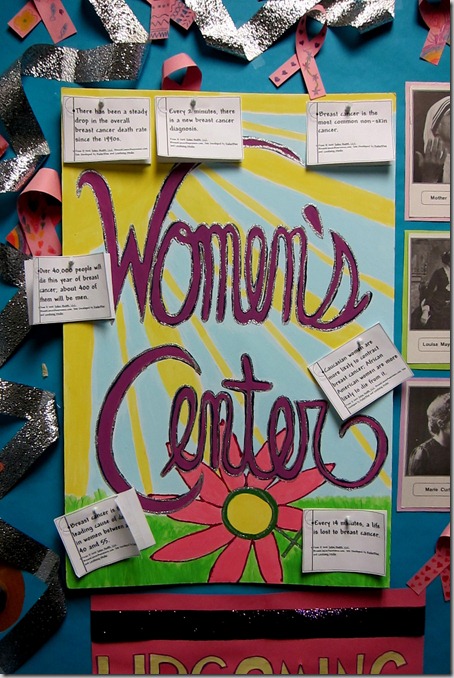 There has been a steady
drop in the overall
breast cancer death rate
since the 1990s.
Every 3 minutes, there
is a new breast cancer
diagnosis.
Breast cancer is the
most common non-skin
cancer.
Mother
Women's
Over 40,000 people will
die this year of breast
cancer; about 400 of
them will be men.
Louise May
Caucasian women are
more likely to contract
breast cancer. African
American women are more
likely to die from it.
Center
Marie Curi
Breast cancer is
leading cause of
in women between
40 and 55.
Every 14 minutes, a life
is lost to breast cancer.
UPCOMING